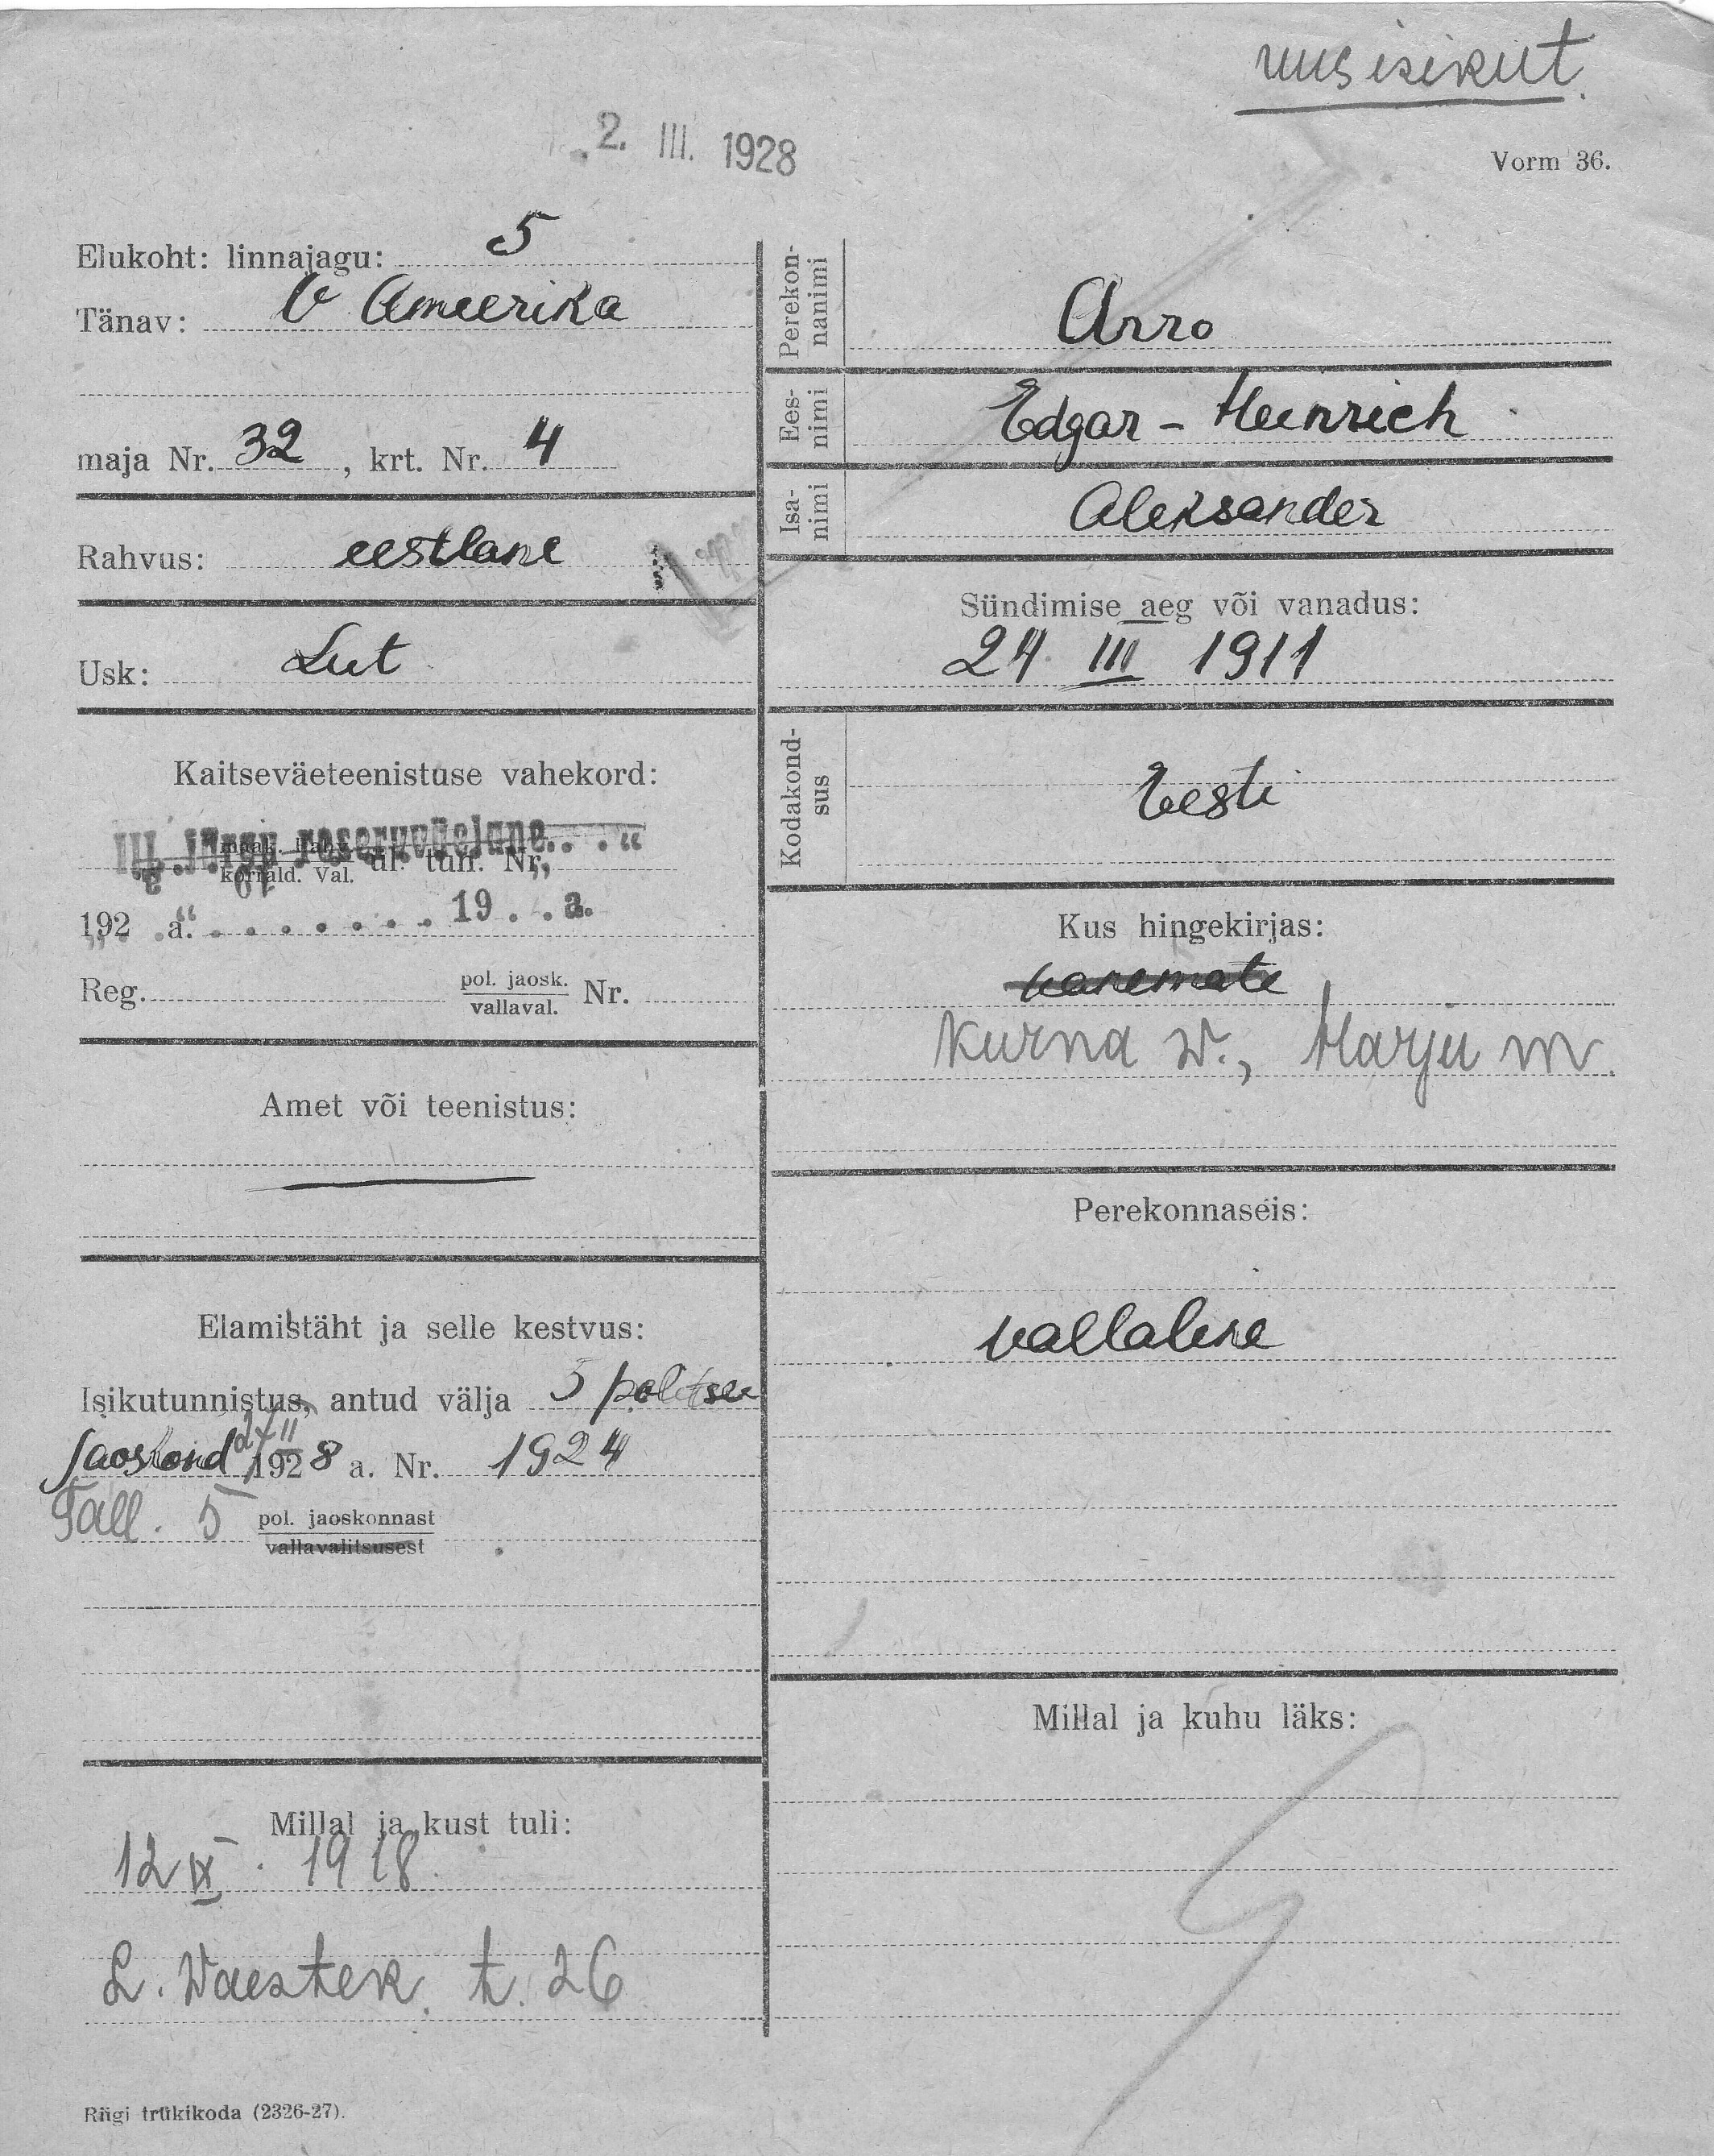 uus isikut.
2. III. 1928
Vorm 36.
Elukoht: linnajagu: 5
Tänav: V Ameerika
maja Nr. 32, krt. Nr. 4
Rahvus: eestlane
Usk: Lut
Kaitseväeteenistuse vahekord:
III. järgu reserveväelane. . . “
maak. Rahv.
korrald. Val. ül. tun. Nr.
192 a. “ . . . . . . . 19 . . a.
Reg. pol. jaosk. Nr.
vallaval.
Amet või teenistus:
Elamistäht ja selle kestvus:
Isikutunnistus, antud välja 5 politsei
jaoskond 1928 a. Nr. 1924
Tall. 5 pol. jaoskonnast
vallavalitsusest
Millal ja kust tuli:
12 IX. 1918
L. Waestek. t. 26
Riigi trükikoda (2326-27).
Perekon-
nanimi
Arro
Ees-
nimi
Edgar - Heinrich
Isa-
nimi
Aleksander
Sündimise aeg või vanadus:
24. III 1911
Kodakond-
sus
Eesti
Kus hingekirjas:
vanemate
Kurna w., Harju m.
Perekonnaseis:
vallaline
Millal ja kuhu läks: